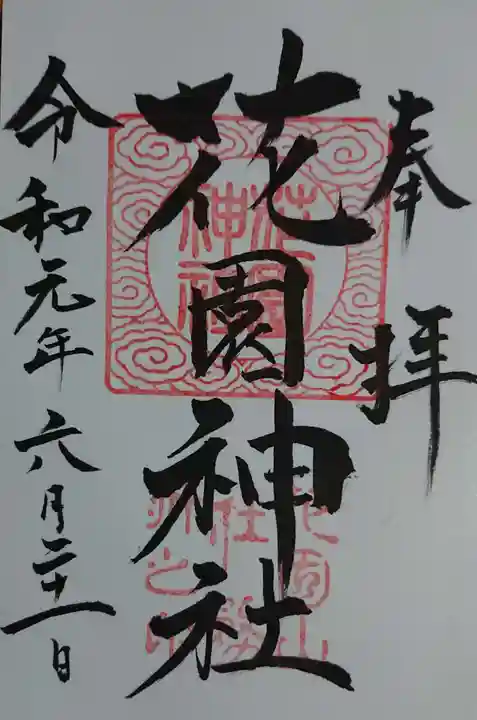 奉拝
花園神社
令和元年六月二十一日
花園
神社